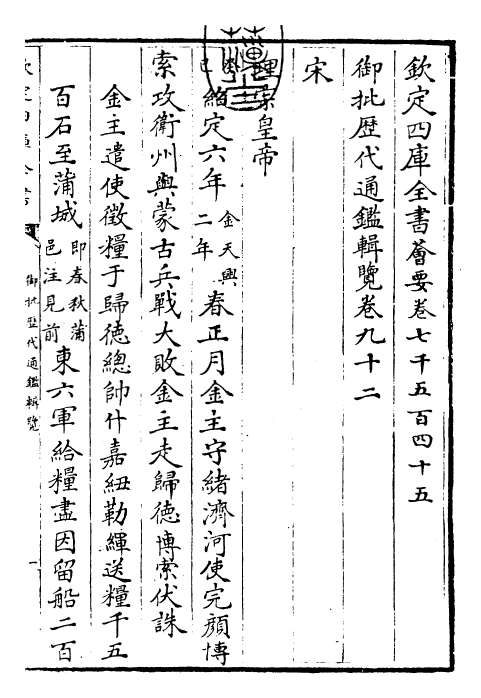 欽定四庫全書薈要卷七千五百四十五
御批歴代通鑑輯覽卷九十二
宋
理宗皇帝
癸巳紹定六年金天興二年春正月金主守緒濟河使完顔博
索攻衛州與蒙古兵戰大敗金主走歸德博索伏誅
金主遣使徵糧于歸德總帥什嘉紐勒緷送糧千五
百石至蒲城即春秋蒲邑注見前東六軍給糧盡因留船二百
御批歴代通鑑輯覽
一